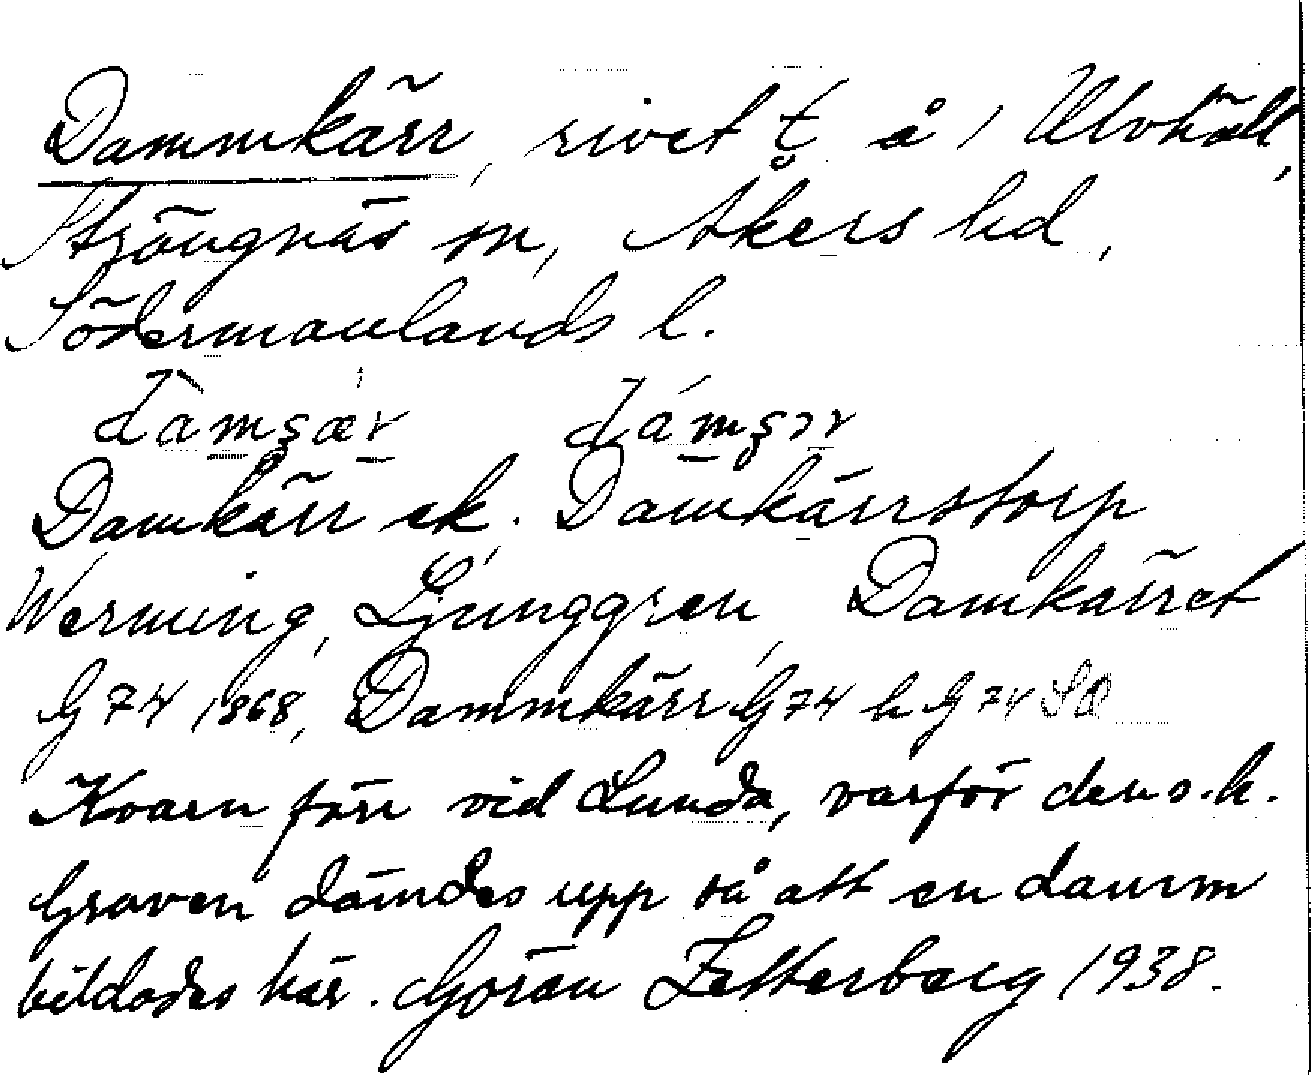 Dammkärr, rivet t. å / Ulvhäll,
Strängnäs sn, Åkers hd,
Södermanlands l.
dàmʂæ̀r dámʂɪr
Damkärr ek. Damkärrstorp
Werming, Ljunggren, Damkärret
G 74 1868, Dammkärr G 74 h G 74 SO
Kvarn förr vid Lunda, varför den s.k.
Graven dämdes upp så att en damm
bildades här. Göran Zetterberg 1938.